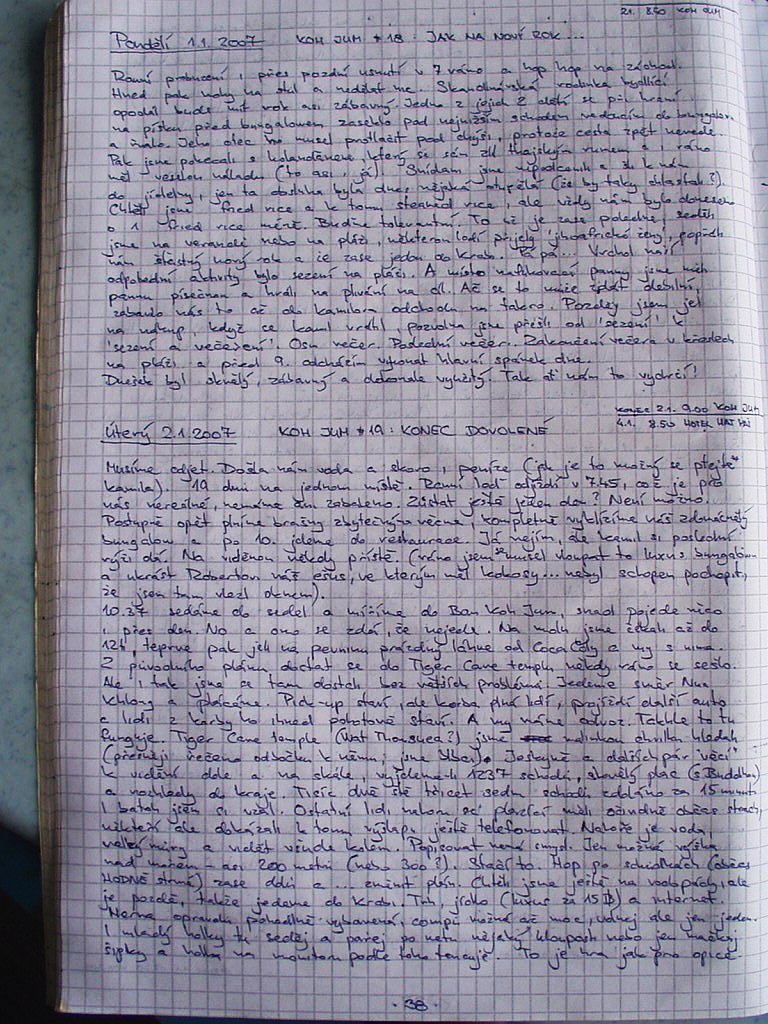 2.1. 8.50 KOH JUM
Pondělí 1.1.2007 KOH JUM #18 JAK NA NOVÝ ROK...
Ranní probuzení i přes pozdní usnutí v 7 ráno a hop hop na záchod.
Hned pak nohy na stůl a nedělat nic. Skandinávská rodinka bydlící
opodál bude mít rok asi zábavný. Jedno z jejich 2 dětí se při hraní
na písku před bungalovem zaseklo pod nejnižším schodem vedoucím do bungalovu
a řvalo. Jeho otec ho musel protlačit pod chýši, protože cesta zpět nevedla.
Pak jsme pokecali s holanďanem, který se sám zlil thajským rumem a i ráno
měl veselou náladu (to asi i já). Snídani jsme
do jídelny, jen ta obsluha byla dnes nějaká (že by taky chlastali?).
Chtěli jsme fried rice a k tomu steamed rice, ale vždy nám bylo doneseno
o 1 fried rice méně. Buďme tolerantní. To už je zase poledne, sedíh
jsme na verandě nebo na pláži, některou lodí přijely 'jihoafrické ženy', popřáli
nám šťastný nový rok a že zase jedou do Krabi. Pá pá... Vrchol naší
odpolední aktivity bylo sezení na pláži. A místo nafukovací panny jsme měli
pannu písečnou a hráli na plivání na cíl. Ač se to může zdát debilní,
zabavilo nás to až do kamilova odchodu na takro. Později jsem jel
na nákup, když se kamil vrátil, pozvolna jsme přešli od 'sezení' k
'sezení a večeření'. Osm večer. Poslední večer. Zakončení večera v křeslech
na pláži a před 9. odcházím vykonat hlavní spánek dne.
Dnešek byl skvělý, zábavný a dokonale využitý. Tak ať nám to vydrží!
KONEC 2.1. 9.00 KOH JUM
4.1. 8.50 HOTEL HAT YAI
Úterý 2.1.2007 KOH JUM #19: KONEC DOVOLENÉ
Musíme odjet. Došla nám voda a skoro i peníze (jak je to možný se ptejte
kamila). 19 dní na jednom místě. Ranní loď odjíždí v 7.45, což je pro
nás nereálné, nemáme ani zabaleno. Zůstat ještě jeden den? Není možno.
Postupně opět plníme brašny zbytečnýma věcma, kompletně vyklízíme náš zdomácnělý
bungalow a po 10. jdeme do restaurace. Já nejím, ale kamil si poslední
rýži dá. Na viděnou někdy příště. (ráno jsem musel vloupat to luxus bungalovu
a ukrást Robertovi náš ešus, ve kterým měl kokosy... nebyl schopen pochopit,
že jsem tam vlezl oknem).
10.37 sedáme do sedel a míříme do Ban Koh Jum, snad pojede něco
i přes den. No a ono se zdá, že nejede. Na molu jsme čekali až do
12h, teprve pak jeli na pevninu prázdný láhve od Coca Coly a my s nima.
Z původního plánu dostat se do Tiger Cave templu někdy ráno se sešlo.
Ale i tak jsme se tam dostali bez větších problémů. Jedeme směr Nua
Khlong a plácáme. Pick-up staví, ale korba plná lidí, projíždí další auto
a lidi z korby ho ihned pohotově staví. A my máme odvoz. Takhle to tu
funguje. Tiger Cave temple (Wat ) jsme malinkou chvilku hledali
(přesněji řečeno odbočku k němu, jsme blbci). Jeskyně a dalších pár 'věcí'
k vidění dole a na skále, vyšplhme-li 1237 schodů, skvělý plac (s Buddhou)
a rozhledy do kraje. Tisíc dvě stě třicet sedm schodů zdoláno za 15 minut.
I batoh jsem si vzal. Ostatní lidi nahoru se plazící měli očividně občas strach,
někteří ale dokázali k tomu výšlapu ještě telefonovat. Nahoře je voda,
a vidět všude kolem. Popisovat nemá smysl. Jen možná výška
nad mořem - asi 200 metrů (nebo 300?). Stačí to. Hop po schodkách (občas
HODNĚ strmý) zase dolů a ... změnit plán. Chtěli jsme ještě na vodopády, ale
je pozdě, takže jedeme do Krabi. Trh, jídlo (luxus za 15 ฿) a internet.
Herna opravdu pohodlně vybavená, compů možná až moc, volnej ale jen jeden.
I mladý holky tu seděj a pařej po netu nějaký klouposti nebo jen mačkaj
šipky a holka na monitoru podle toho tancuje. To je hra jak pro opice.
- 38 -